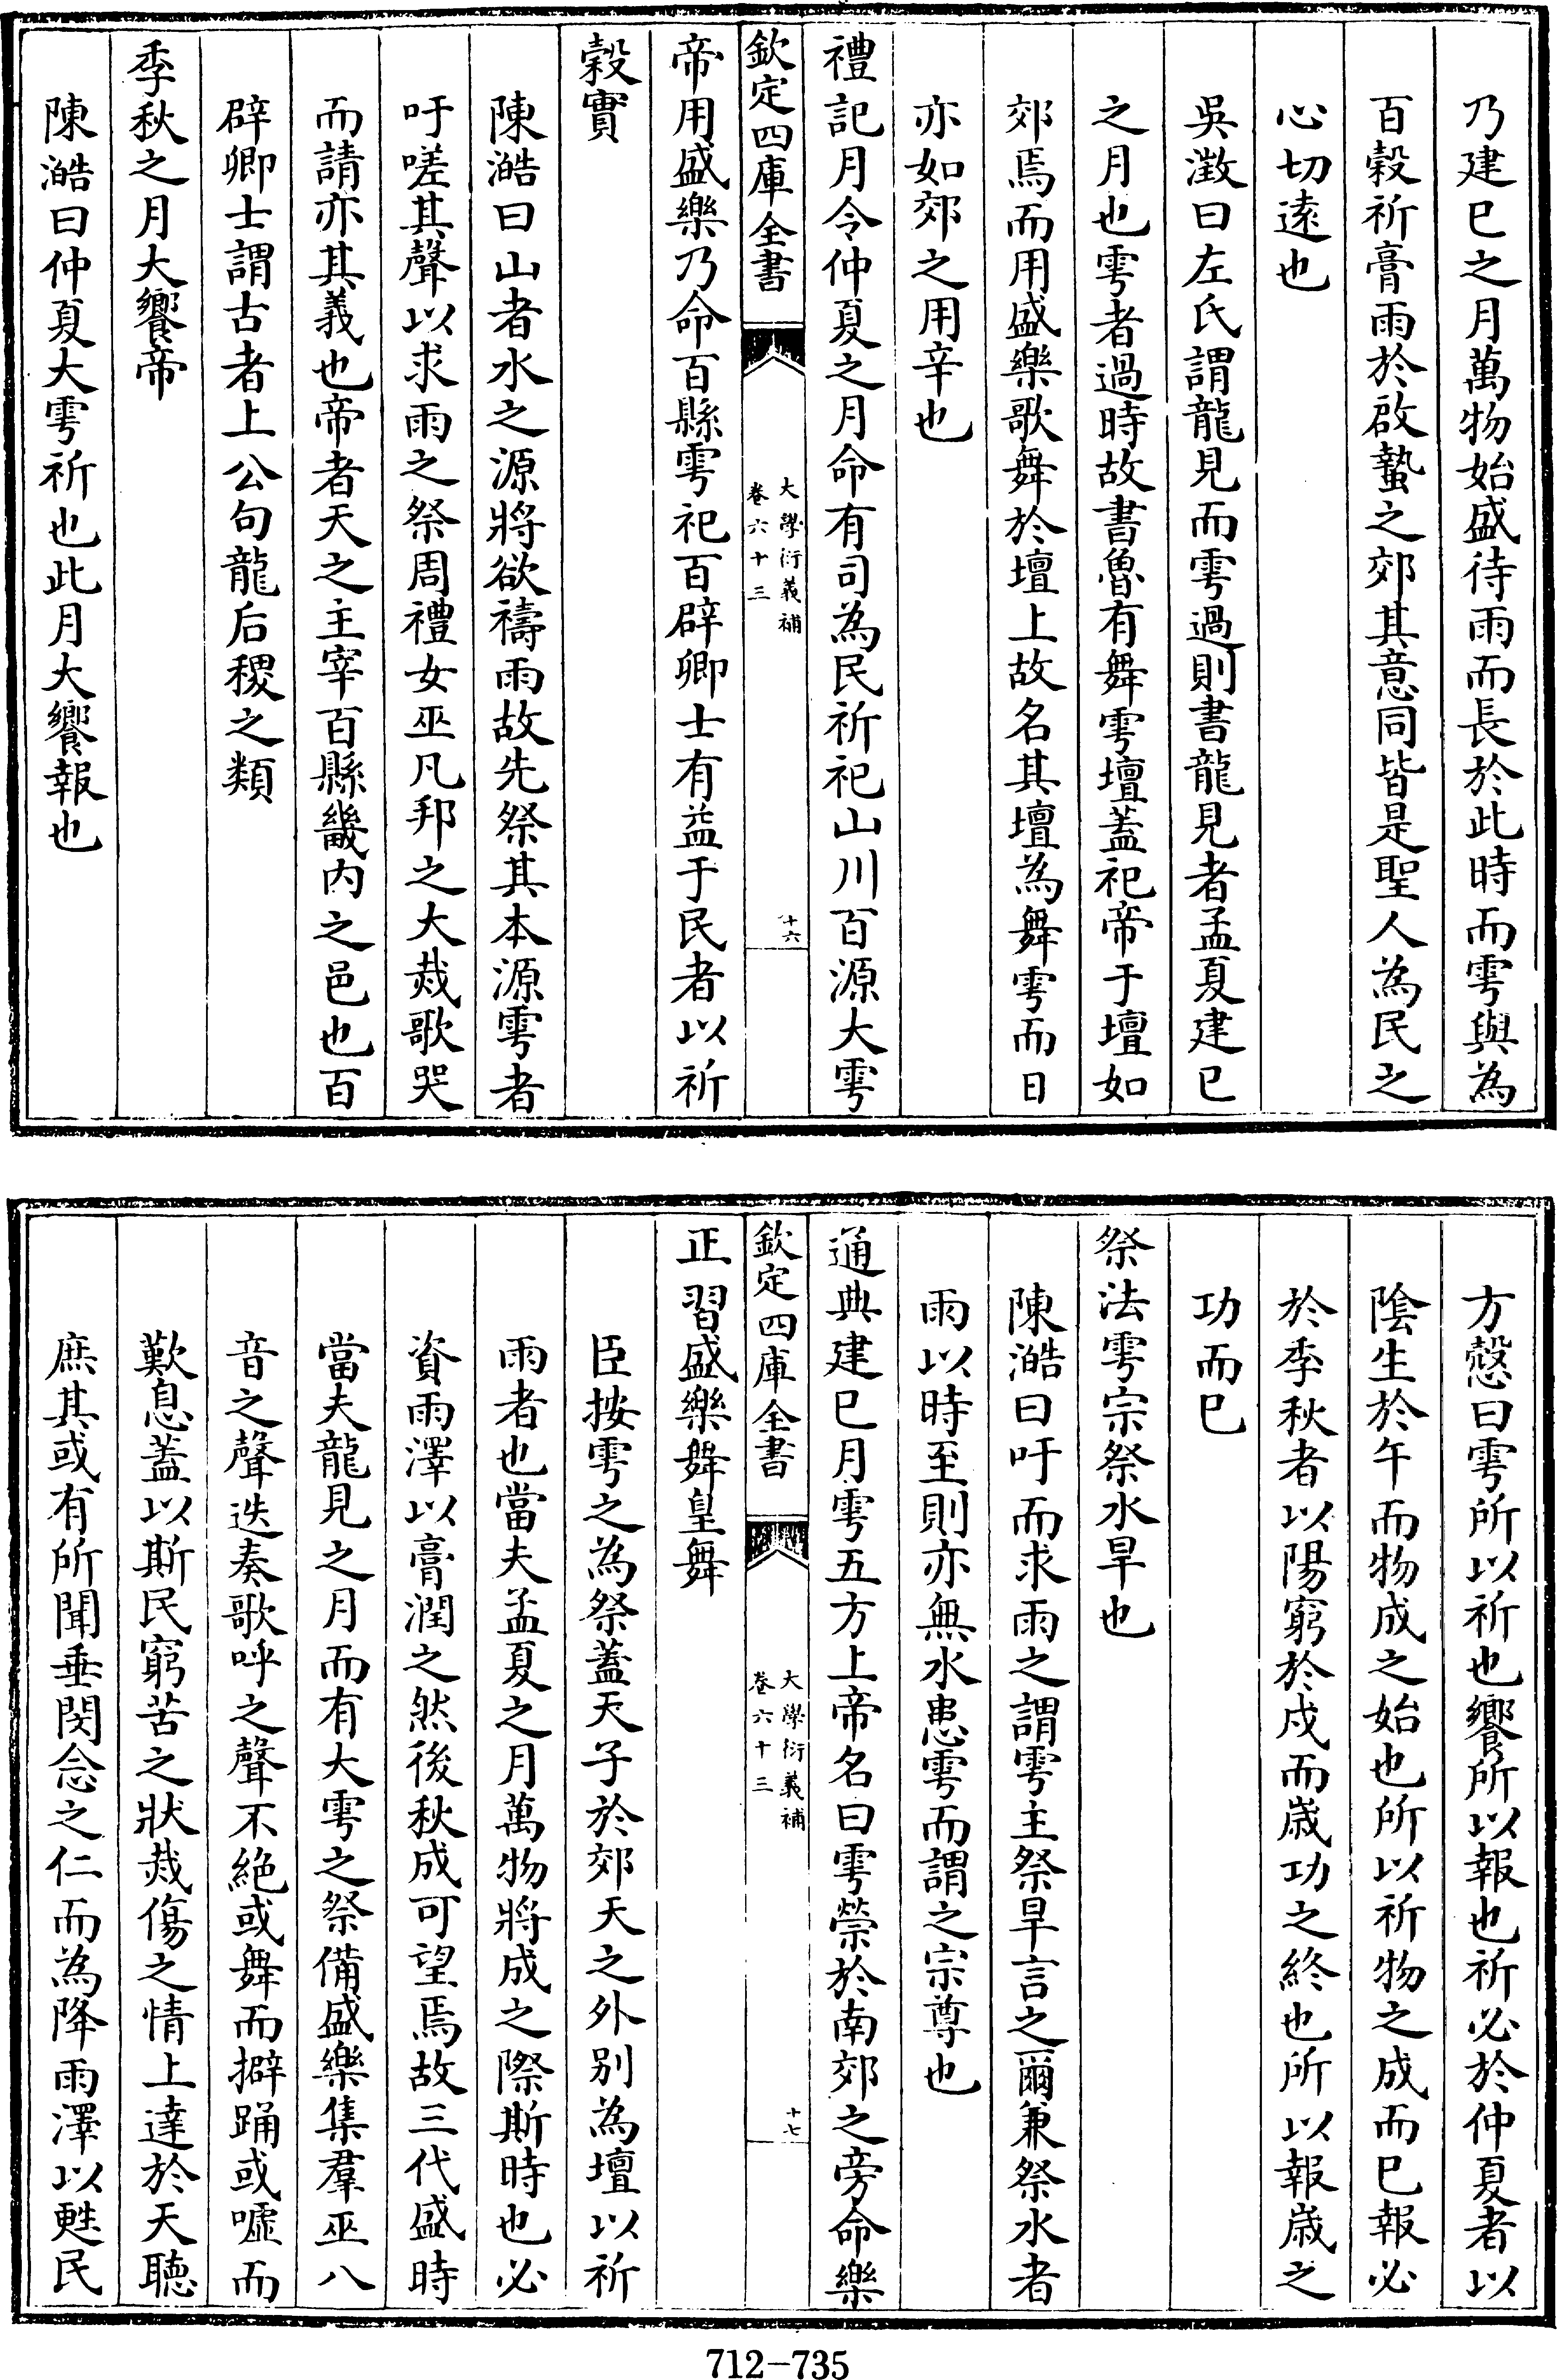 乃建巳之月萬物始盛待雨而長於此時而雩與為
百穀祈膏雨於啟蟄之郊其意同皆是聖人為民之
心切遠也
吳澂曰左氏謂龍見而雩過則書龍見者孟夏建巳
之月也雩者過時故書魯有舞雩壇蓋祀帝于壇如
郊焉而用盛樂歌舞於壇上故名其壇為舞雩而日
亦如郊之用辛也
禮記月令仲夏之月命有司為民祈祀山川百源大雩
欽定四庫全書
大學衍義補
卷六十三
十六
帝用盛樂乃命百縣雩祀百辟卿士有益于民者以祈
穀實
陳澔曰山者水之源將欲禱雨故先祭其本源雩者
吁嗟其聲以求雨之祭周禮女巫凡邦之大烖歌哭
而請亦其義也帝者天之主宰百縣畿内之邑也百
辟卿士謂古者上公句龍后稷之類
季秋之月大饗帝
陳澔曰仲夏大雩祈也此月大饗報也
方慤曰雩所以祈也饗所以報也祈必於仲夏者以
陰生於午而物成之始也所以祈物之成而已報必
於季秋者以陽窮於戍而歳功之終也所以報歳之
功而已
祭法雩宗祭水旱也
陳澔曰吁而求雨之謂雩主祭旱言之爾兼祭水者
雨以時至則亦無水患雩而謂之宗尊也
通典建巳月雩五方上帝名曰雩禜於南郊之旁命樂
欽定四庫全書
大學衍義補
卷六十三
十七
正習盛樂舞皇舞
臣按雩之為祭蓋天子於郊天之外别為壇以祈
雨者也當夫孟夏之月萬物將成之際斯時也必
資雨澤以膏潤之然後秋成可望焉故三代盛時
當夫龍見之月而有大雩之祭備盛樂集羣巫八
音之聲迭奏歌呼之聲不絶或舞而擗踊或嘘而
歎息蓋以斯民窮苦之狀烖傷之情上達於天聽
庶其或有所聞垂閔念之仁而為降雨澤以甦民
712-735